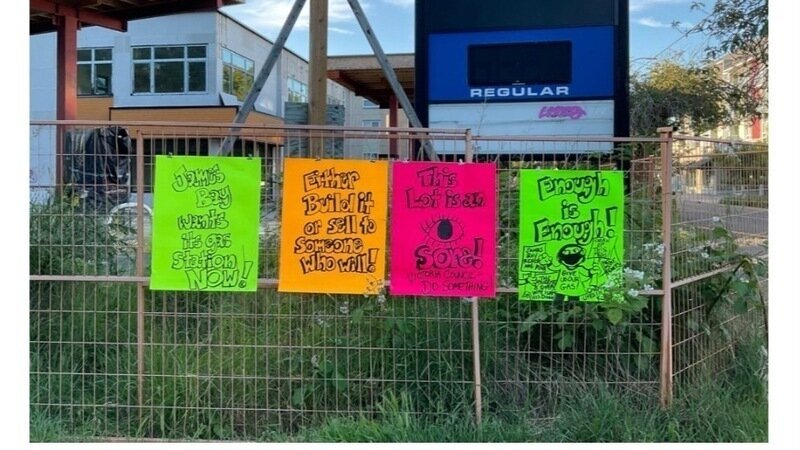 REGULAR
James
Bay
wants
its gas
station
NOW!
Either
Build it
or sell to
someone
who will!
This
Lot is an
sore!
VICTORIA COUNCIL -
DO SOMETHING
Enough
is
Enough!
GIVE
BACK
GAS!